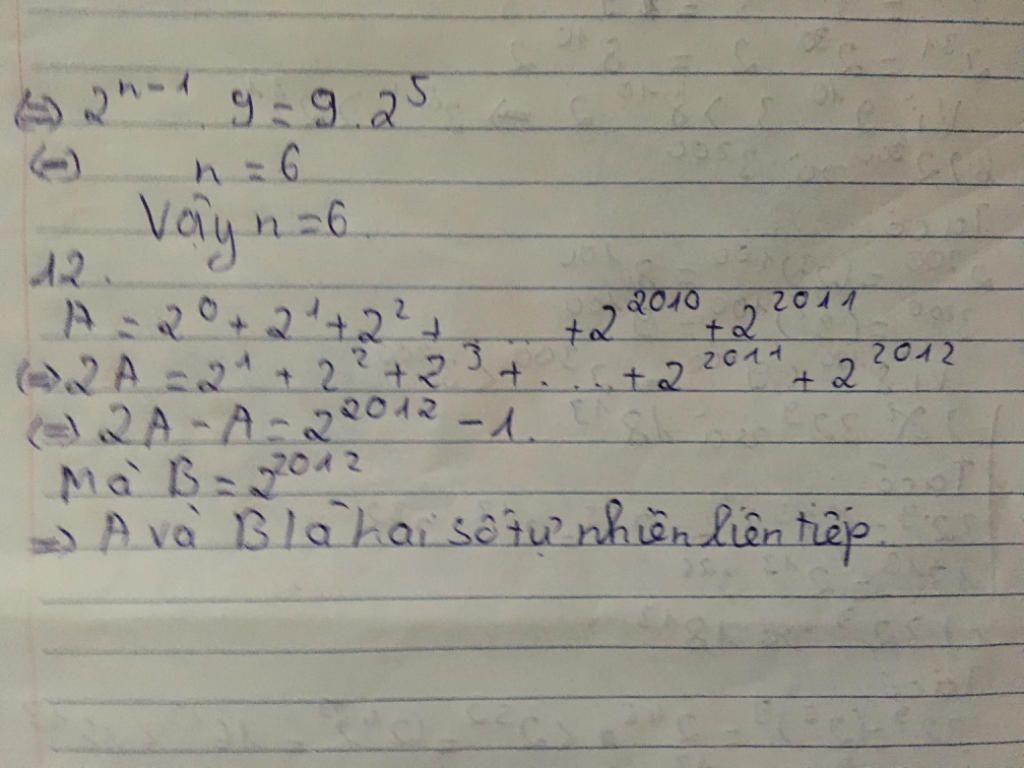 (=) 2^{n-1}. 9 = 9. 2^5
(=) n = 6
Vậy n = 6.
12.
A = 2^0 + 2^1 + 2^2 + ..... + 2^{2010} + 2^{2011}
(=) 2A = 2^1 + 2^2 + 2^3 + .... + 2^{2011} + 2^{2012}
(=) 2A - A = 2^{2012} - 1.
Mà B = 2^{2012}
=> A và B là hai số tự nhiên liên tiếp.